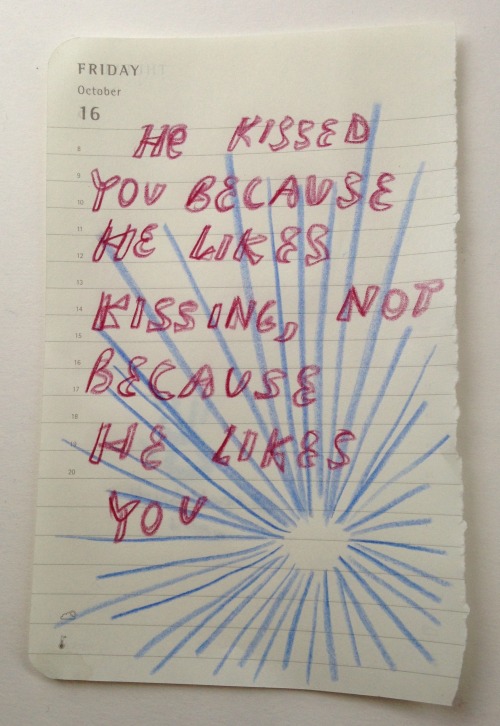 FRIDAY
October
16
He KISSED
8
9
YOU BECAUSE
10
11
HE LIKES
12
13
KISSING, NOT
14
15
16
BECAUSE
17
18
HE LIKES
19
20
YOU